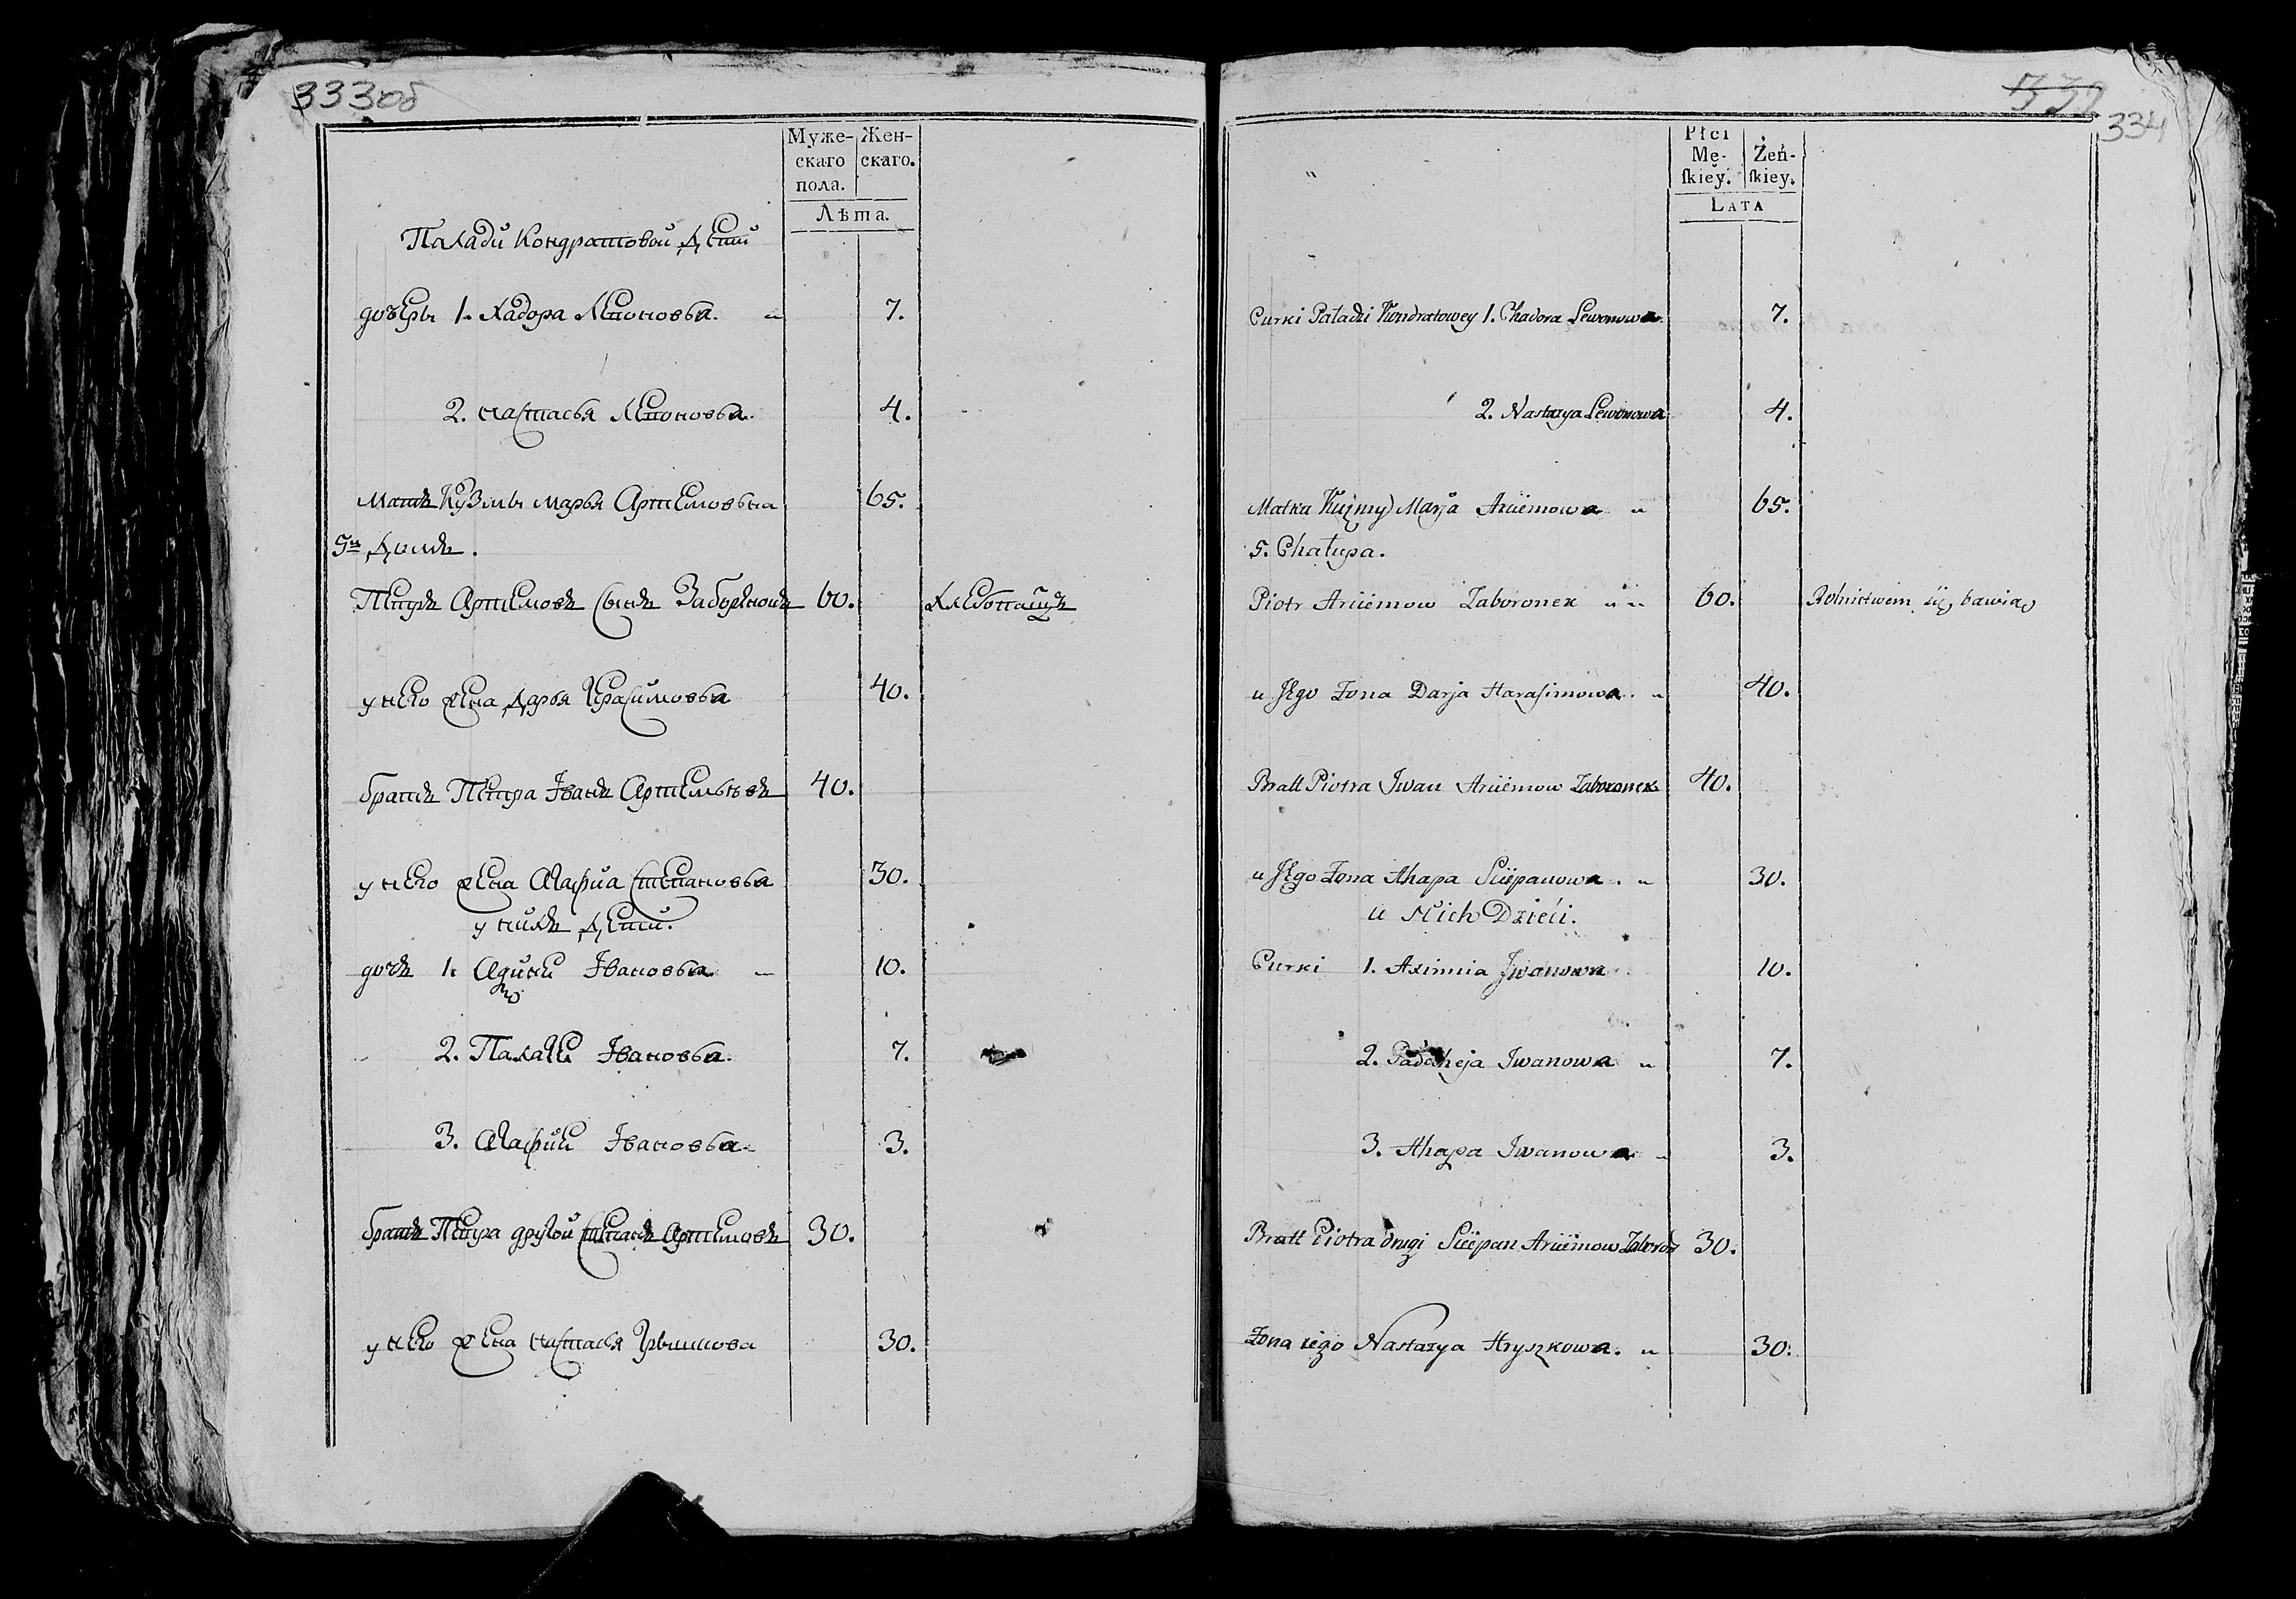 333об
Муже-
скаго
пола.
Жен-
скаго.
Лѣта.
Палади Кондратовой дети
дочерь 1. Хадора Леоновьа. 7.
2. настасья Леоновьа. 4.
Матъ Кузмы марья Артемовьна 65.
5й домъ.
Петръ Артемовъ сынъ Заборонокъ 60. Хлебопашецъ
у него жена дарья Герасимовьа 40.
братъ Петра Іванъ Артемьевъ 40.
у него жена Агафиа степановьа 30.
у нихъ дети.
дочъ 1. Івановьа 10.
2. Палаги Івановьа. 7.
3. Агафии Івановьа. 3.
братъ Петра другой степанъ Артемовъ 30.
у него жена настасья Грышкова 30.
334
Płci
Mę-
ſkiey.
Żeń-
ſkiey.
LATA
Curki Paładzi Kondratowey 1. Chadora Lewonowa 7.
2. Nastazya Lewonowa 4.
Matka Kuzmy Marja Arciemowa 65.
5. Chałupa.
Piotr Arciemow Zaboronek 60. Rolnictwem się bawiąc
u Jego Zona Darja Haraſimowa. 40.
Bratt Piotra Jwan Arciemow Zaboronek 40.
u Jego Zona Ahapa Sciepanowa. 30.
u Nich Dzieci.
Curki 1. Axinnia Jwanowa 10.
2. Jwanowa 7.
3. Ahapa Jwanowa 3.
Bratt Piotra drugi Sciepan Arciemow Zaboron 30.
Zona iego Nastazya Hryszkowa. 30.